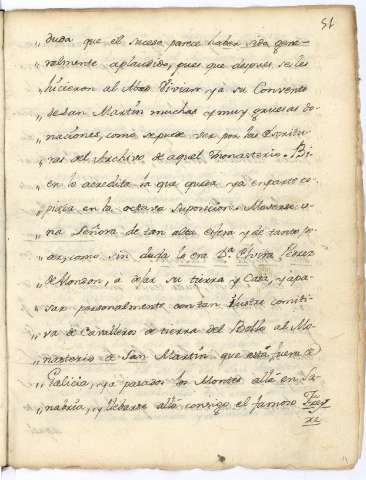 51
„ duda que el suceso parece haber sido gene-
„ ralmente aplaudido, pues que despues se les
„ hicieron al Abad Vivian, ya su Convento
„ de San Martin muchas y muy gruesas do-
„ naciones, como se puede ver por las Escritu-
„ ras del Archivo de aquel Monasterio. Bi-
„ en lo acredita la que queda ya en parte co-
„ piada en la octava suposicion. Moverse u-
„ na Señora de tan alta esfera y de tanto po-
„ der, como sin duda lo era D.ª Elvira Perez
„ de Monzon, a dejar su tierra y Casa, y apa-
„ sar personalmente con tan ilustre comiti-
„ va de Cavalleros de tierra del Bollo al Mo-
„ nasterio de San Martin que está fuera de
„ Galicia, ya pasados los Montes allá en Sa-
„ nabria, y llebarse allá consigo el famoso